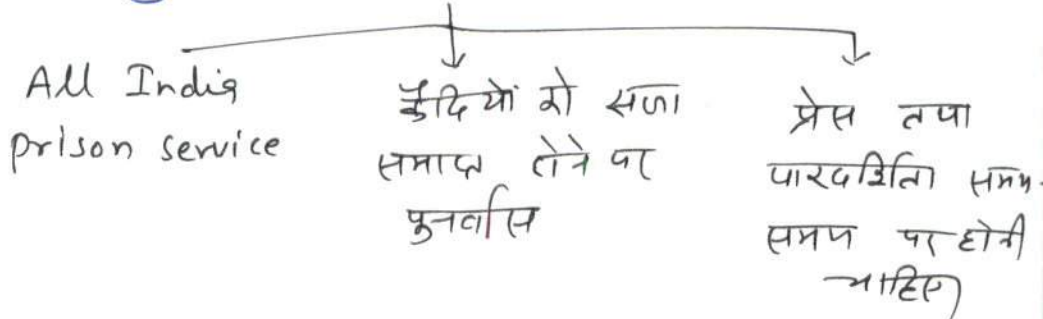 All India
prison service
कैदियों को सजा
समाप्त होने पर
पुनर्वास
प्रेस तथा
पारदर्शिता समय-
समय पर होनी
चाहिए